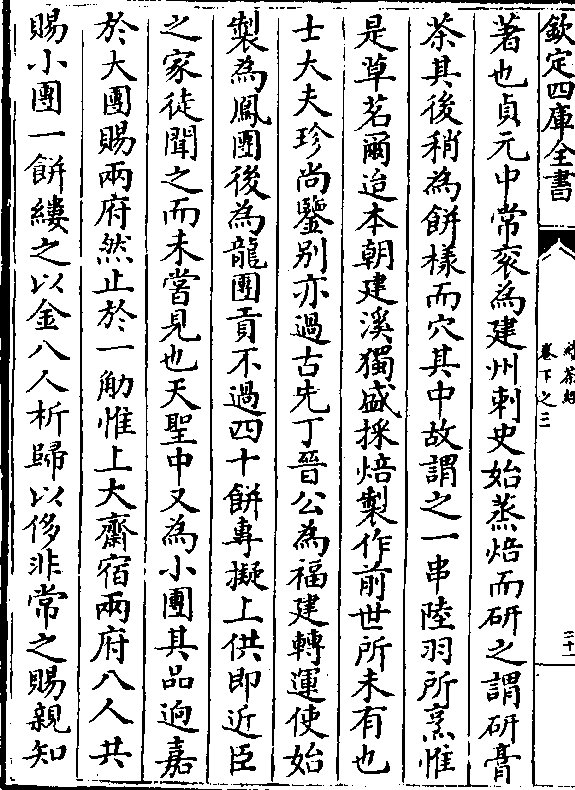 欽定四庫全書
續茶經
卷下之三
二十一
著也貞元中常衮為建州刺史始蒸焙而研之謂研膏
茶其後稍為餅樣而穴其中故謂之一串陸羽所烹惟
是草茗爾迨本朝建溪獨盛採焙製作前世所未有也
士大夫珍尚鑒别亦過古先丁晉公為福建轉運使始
製為鳳團後為龍團貢不過四十餅專擬上供即近臣
之家徒聞之而未嘗見也天聖中又為小團其品迥嘉
於大團賜兩府然止於一觔惟上大齋宿兩府八人共
賜小團一餅縷之以金八人析歸以侈非常之賜親知